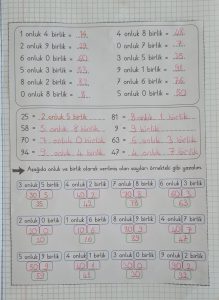 1 onluk 4 birlik = 14    4 onluk 8 birlik = 48
2 onluk 9 birlik = 29    0 onluk 7 birlik = 7
6 onluk 0 birlik = 60    3 onluk 5 birlik = 35
5 onluk 3 birlik = 53    9 onluk 1 birlik = 91
8 onluk 2 birlik = 82    7 onluk 6 birlik = 76
0 onluk 8 birlik = 8    5 onluk 0 birlik = 50
25 = 2 onluk 5 birlik    81 = 8 onluk 1 birlik
58 = 5 onluk 8 birlik    9 =
70 = 7 onluk 0 birlik    63 = 6 onluk 3 birlik
94 = 9 onluk 4 birlik    47 = 4 onluk 7 birlik
Aşağıda onluk ve birlik olarak verilmiş olan sayıları örnekteki gibi yazalım.
3 onluk 5 birlik    4 onluk 2 birlik    7 onluk 8 birlik    6 onluk 3 birlik
30 5    40 2    70 8    60 3
35    42    78    63
2 onluk 0 birlik    1 onluk 6 birlik    8 onluk 9 birlik    4 onluk 7 birlik
20 0    10 6    80 9    40 7
20    16    89    47
5 onluk 9 birlik    4 onluk 1 birlik    3 onluk 0 birlik    9 onluk 2 birlik
50 9    40 1    30 0    90 2